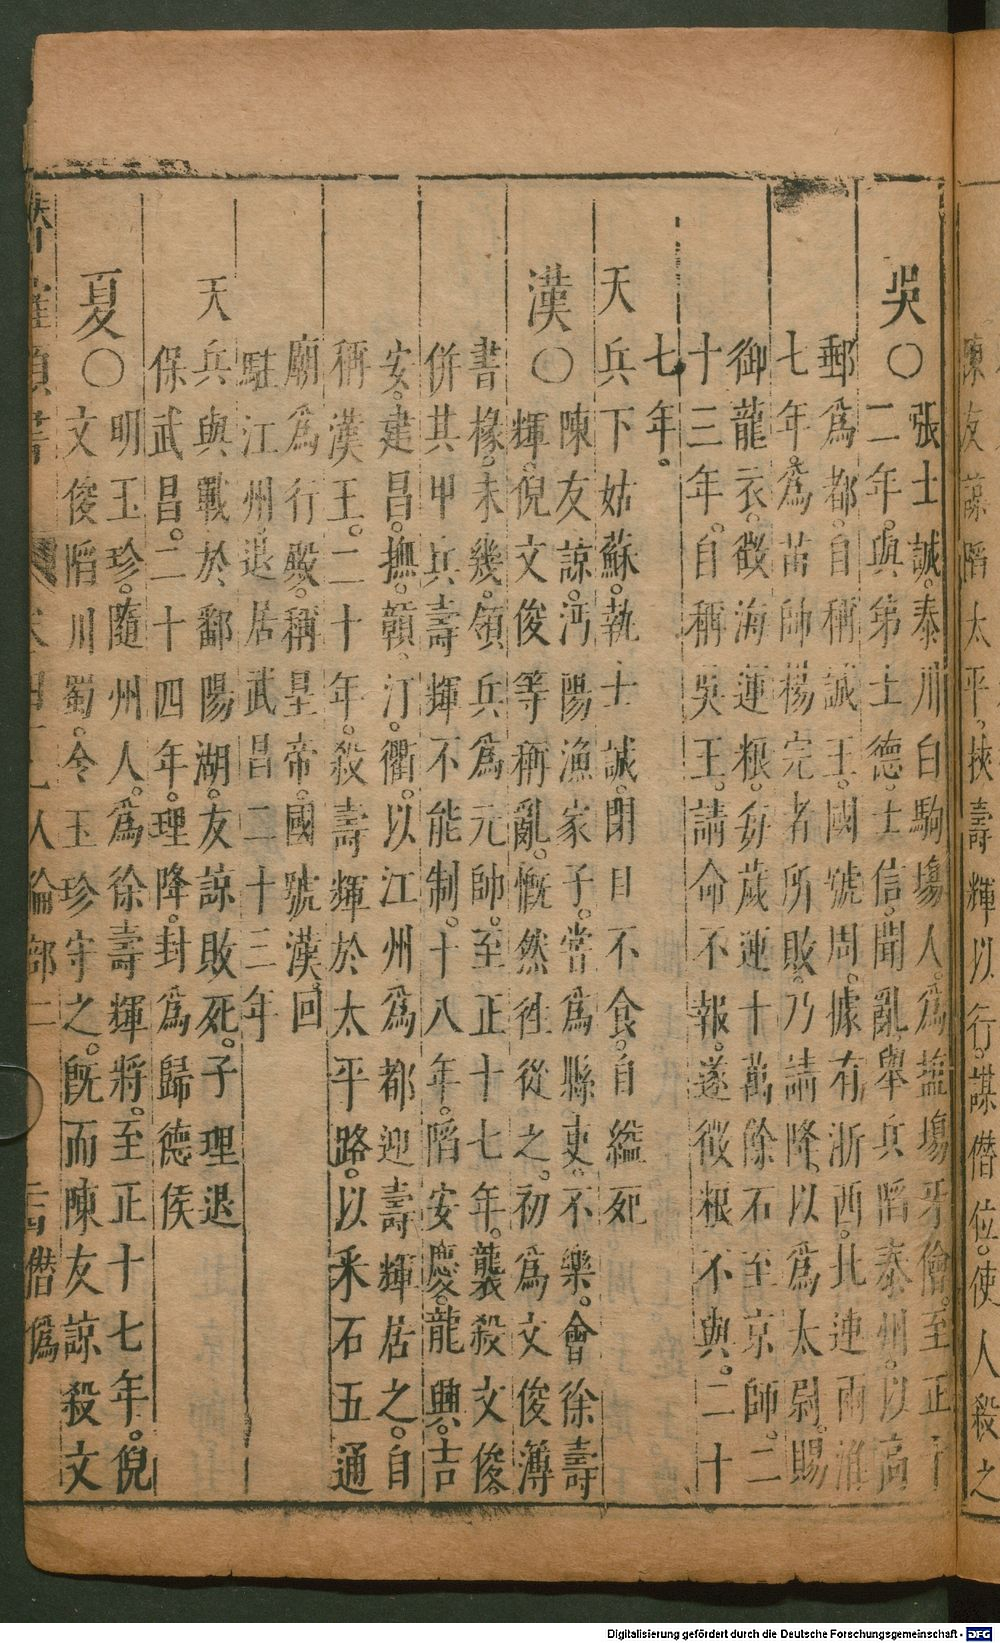 陳友諒陷太平挾壽輝以行。謀僭位。使人殺之
吳〇張士誠。泰川白駒塲人。爲鹽塲牙儈。至正十
二年。與弟士德。士信。聞亂舉兵陷泰州。以高
郵爲都。自稱誠王。國號周。據有浙西。北連兩淮
七年。爲苗帥楊完者所敗。乃請降。以爲太尉。賜
御龍衣。徵海運粮。每歲運十萬餘石至京師。二
十三年。自稱吳王。請命不報。遂徵粮不與。二十
七年。
天兵下姑蘇。執士誠。閉目不食。自縊死
漢〇陳友諒。沔陽漁家子。嘗爲縣吏。不樂。會徐壽
輝。倪文俊等稱亂。慨然徃從之。初爲文俊簿
書椽。未幾。領兵爲元帥。至正十七年。襲殺文俊。
併其甲兵壽輝不能制。十八年。陷安慶。龍興。吉
安。建昌。撫。贛。汀。衢。以江州爲都迎壽輝居之。自
稱漢王。二十年。殺壽輝於太平路。以釆石五通
廟爲行殿。稱皇帝。國號漢。回
駐江州。退居武昌二十三年
天
兵與戰於鄱陽湖。友諒敗死。子理退
保武昌。二十四年。理降。封爲歸德侯
夏〇明玉珍。隨州人。爲徐壽輝將。至正十七年。倪
文俊陷川蜀。令玉珍守之。旣而陳友諒殺文
人倫部二 僭僞
Digitalisierung gefördert durch die Deutsche Forschungsgemeinschaft - DFG